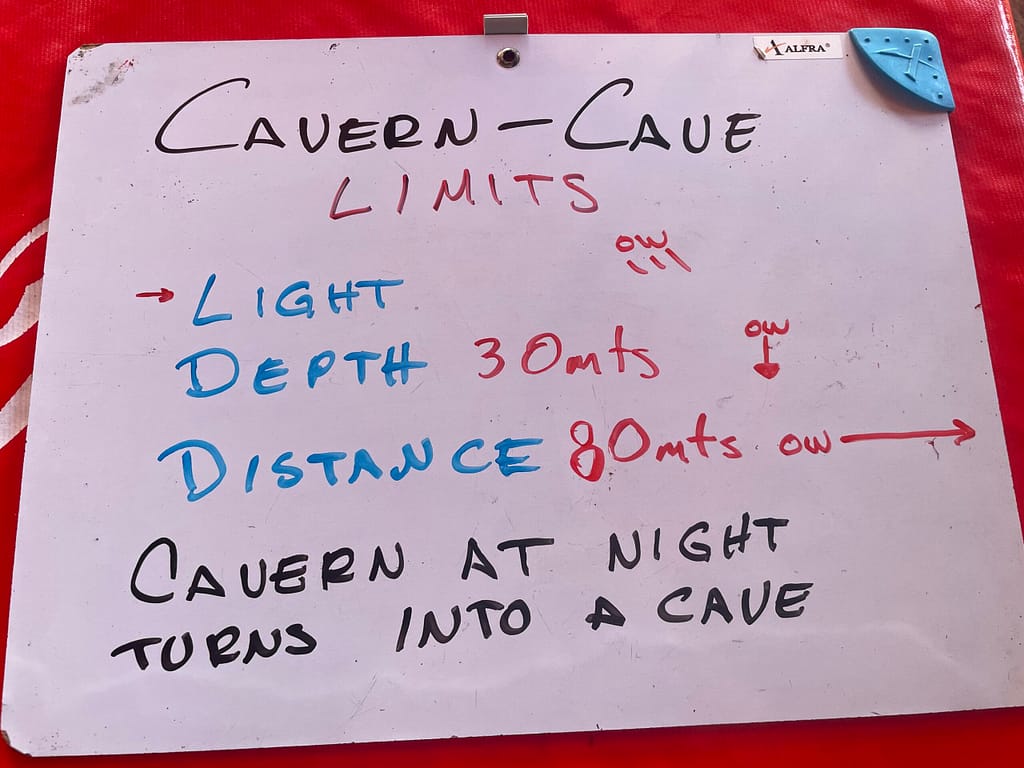 ALFRA®
CAVERN - CAVE
LIMITS
OW
→ LIGHT
OW
DEPTH 30mts
DISTANCE 80mts OW →
CAVERN AT NIGHT
TURNS INTO A CAVE